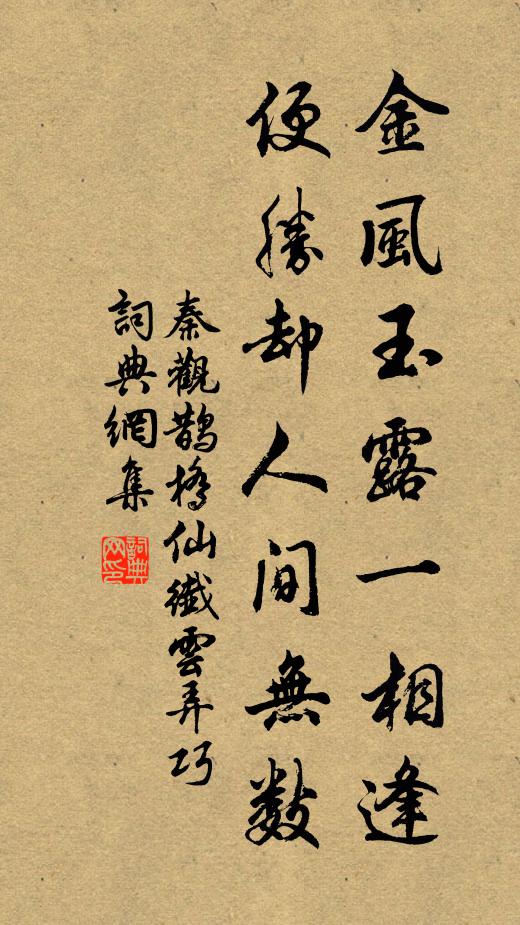 金風玉露一相逢
便勝却人間無数
秦觀鵲橋仙纖雲弄巧
詞典網集
詞典网印